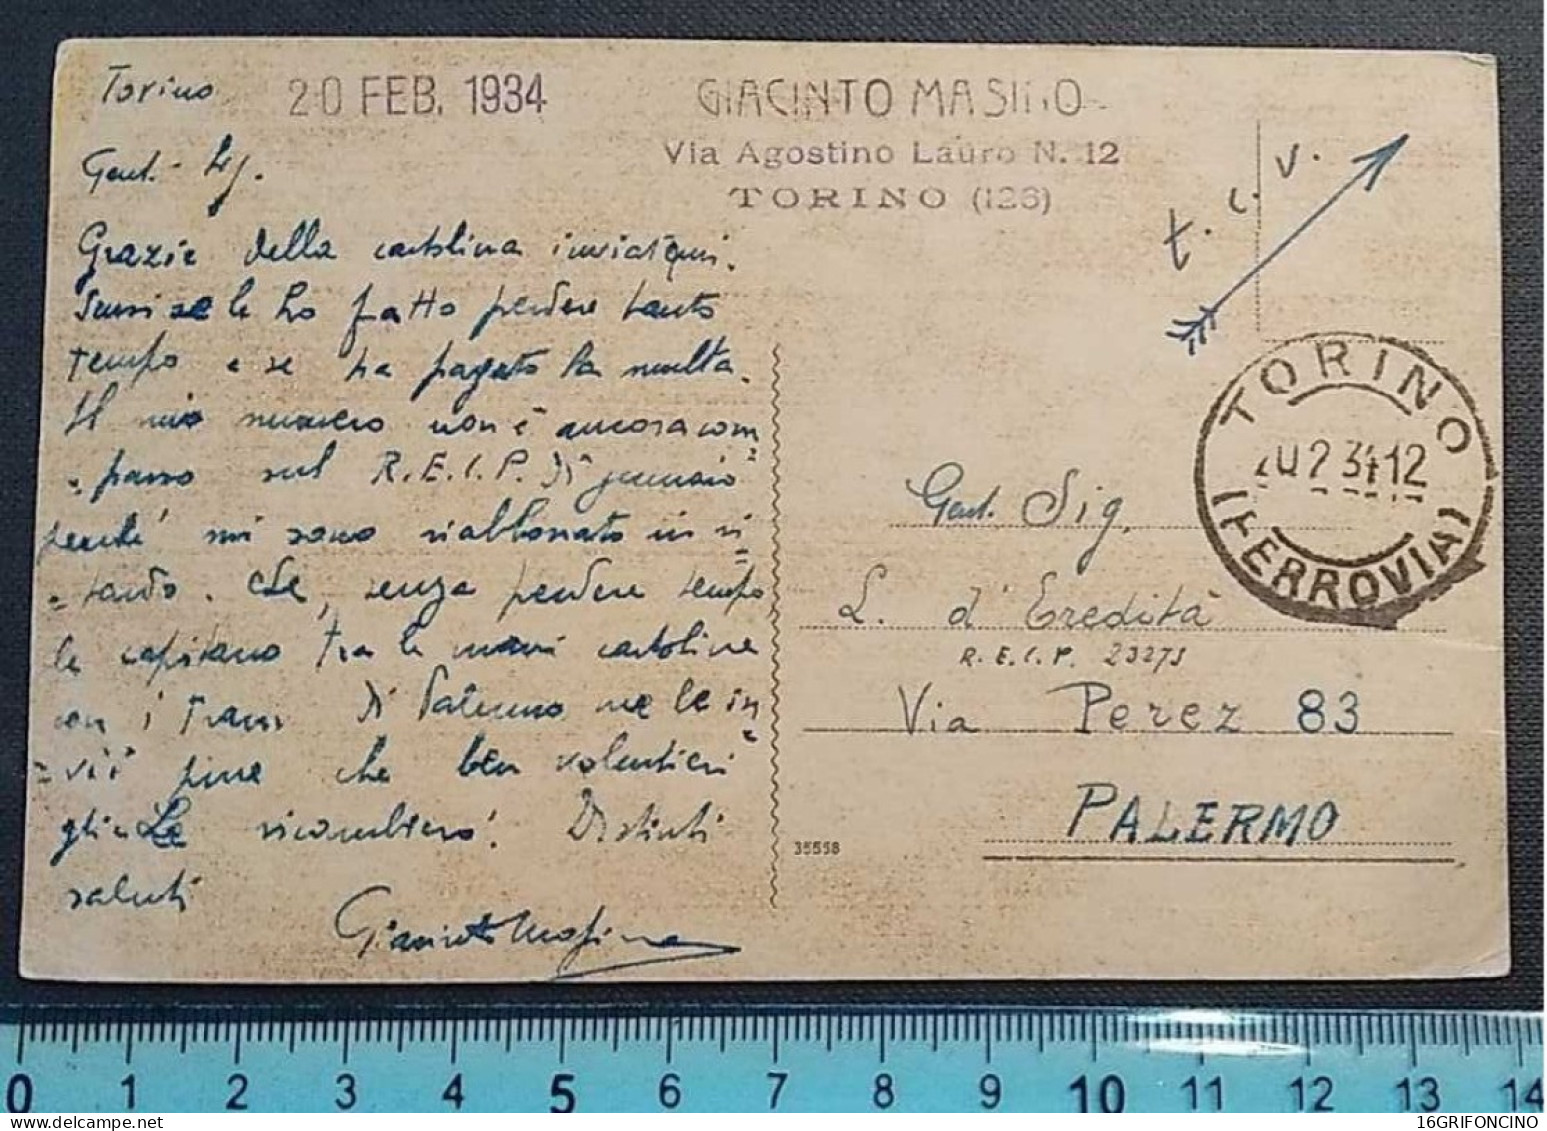 Torino 20 FEB. 1934
GIACINTO MASINO
Via Agostino Lauro N. 12
TORINO (126)
t. c. v.
Gent. Sig.
Grazie della cartolina inviatami.
Scusi se le ho fatto perdere tanto
tempo e se ha pagato la multa.
Il mio numero non è ancora com
=parso sul R.E.I.P. di gennaio
perché mi sono riabbonato in ri=
=tardo. Se, senza perdere tempo,
le capitano tra le mani cartoline
con i Trams di Palermo me le in=
=vii pure che ben volentieri
gliele ricambierò. Distinti
saluti
Giacinto Masino
TORINO
20 2 34 12
(FERROVIA)
Gent. Sig.
L. d'Eredità
R.E.I.P. 23275
Via Perez 83
PALERMO
35558
0 1 2 3 4 5 6 7 8 9 10 11 12 13 14
16GRIFONCINO